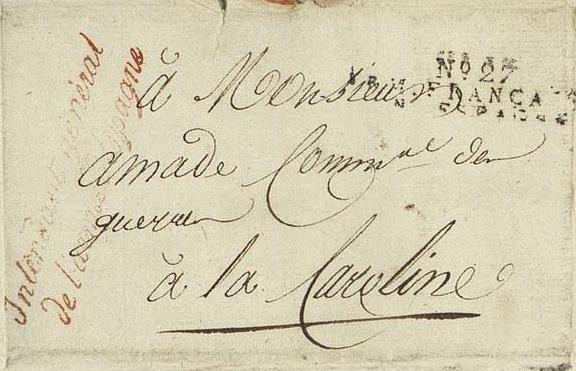 Intendant général
de l'armée Espagne
No. 27
FRANÇA
à Monsieur
amade Comm.re des
guerres
à la Caroline